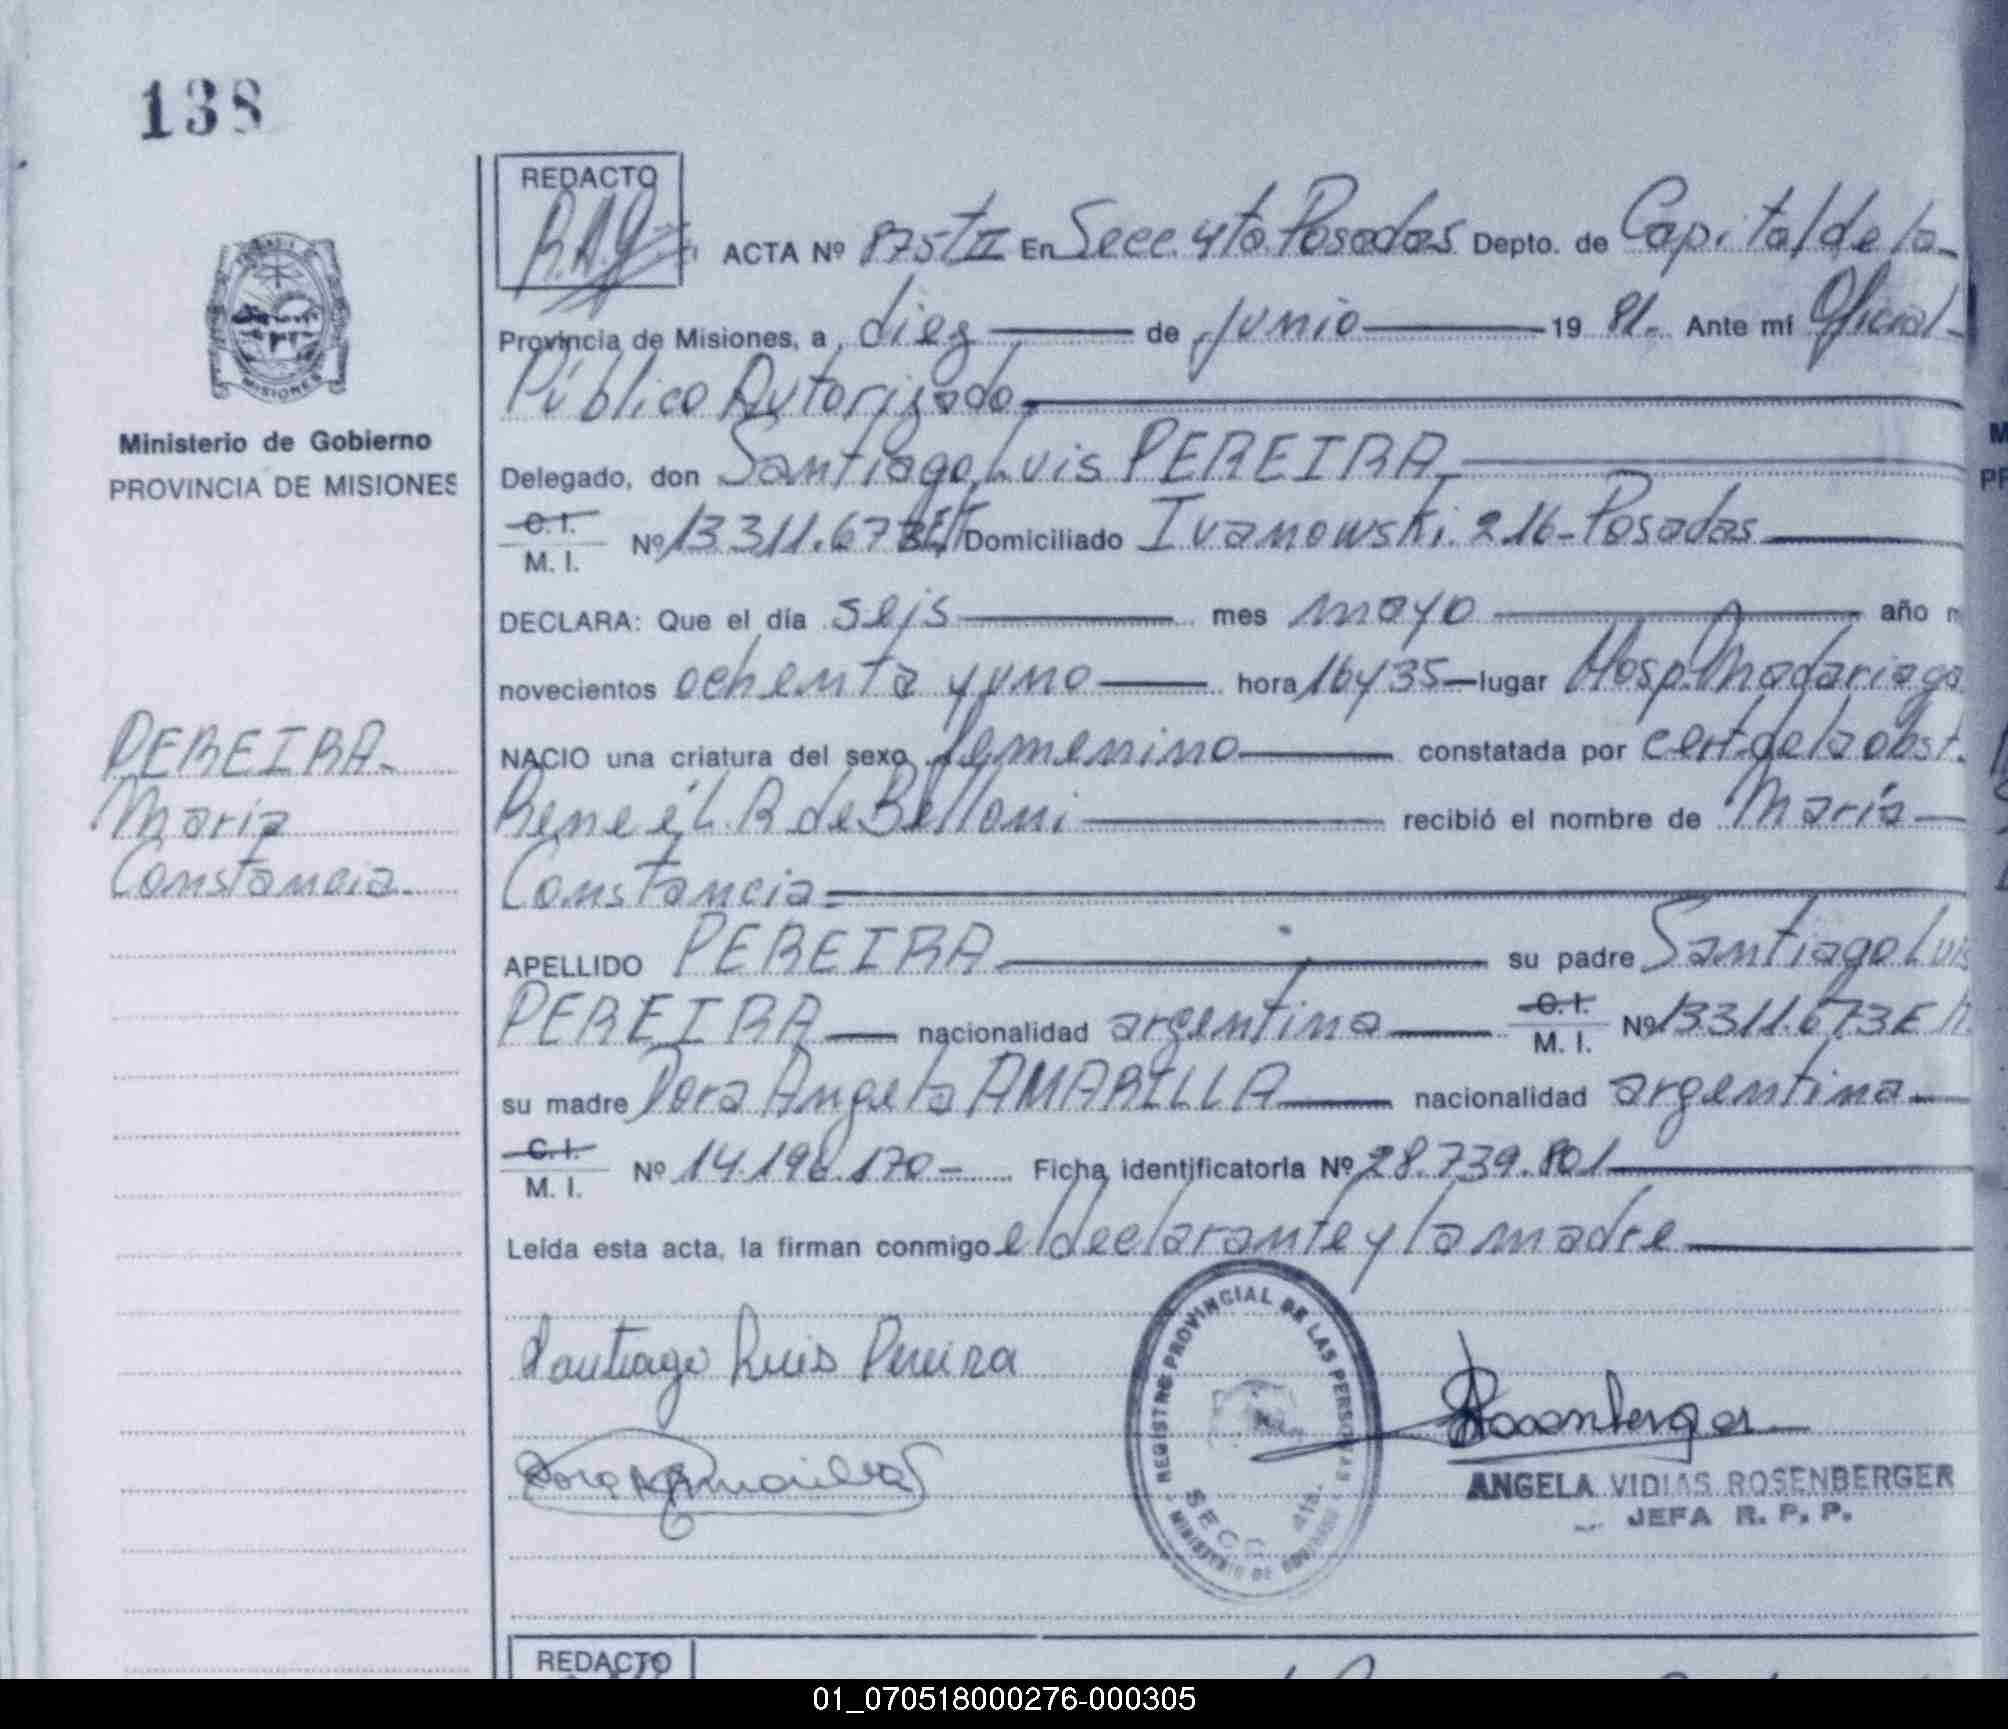 138
REDACTO
R.A.G.
ACTA Nº 875TII En Secc. 4ta. Posadas Depto. de Capital de la
Provincia de Misiones, a diez de junio 19 81. Ante mí Oficial
Público Autorizado.
Delegado, don Santiago Luis PEREIRA
C.I.
M. I. Nº 13311.673 Domiciliado Ivanowski. 216-Posadas
DECLARA: Que el día seis mes mayo año
novecientos ochenta y uno hora 16y35 lugar Hosp. Madariaga
NACIO una criatura del sexo femenino constatada por cert. de la obst.
Rene é L. R de Belloni recibió el nombre de María
Constancia
APELLIDO PEREIRA su padre Santiago Luis
PEREIRA nacionalidad argentina C.I.
M. I. Nº 13311.673E
su madre Dora Angela AMARILLA nacionalidad argentina
C.I.
M. I. Nº 14.196.170 Ficha identificatoria Nº 28.739.801
Leída esta acta, la firman conmigo el declarante y la madre
Santiago Luis Pereira
Dora A Amarilla
Rosenberger
ANGELA VIDIAS ROSENBERGER
JEFA R. P. P.
REGISTRO PROVINCIAL DE LAS PERSONAS
SECC. 4ta.
MINISTERIO DE GOBIERNO
MISIONES
Ministerio de Gobierno
PROVINCIA DE MISIONES
PEREIRA
María
Constancia
REDACTO
01_070518000276-000305